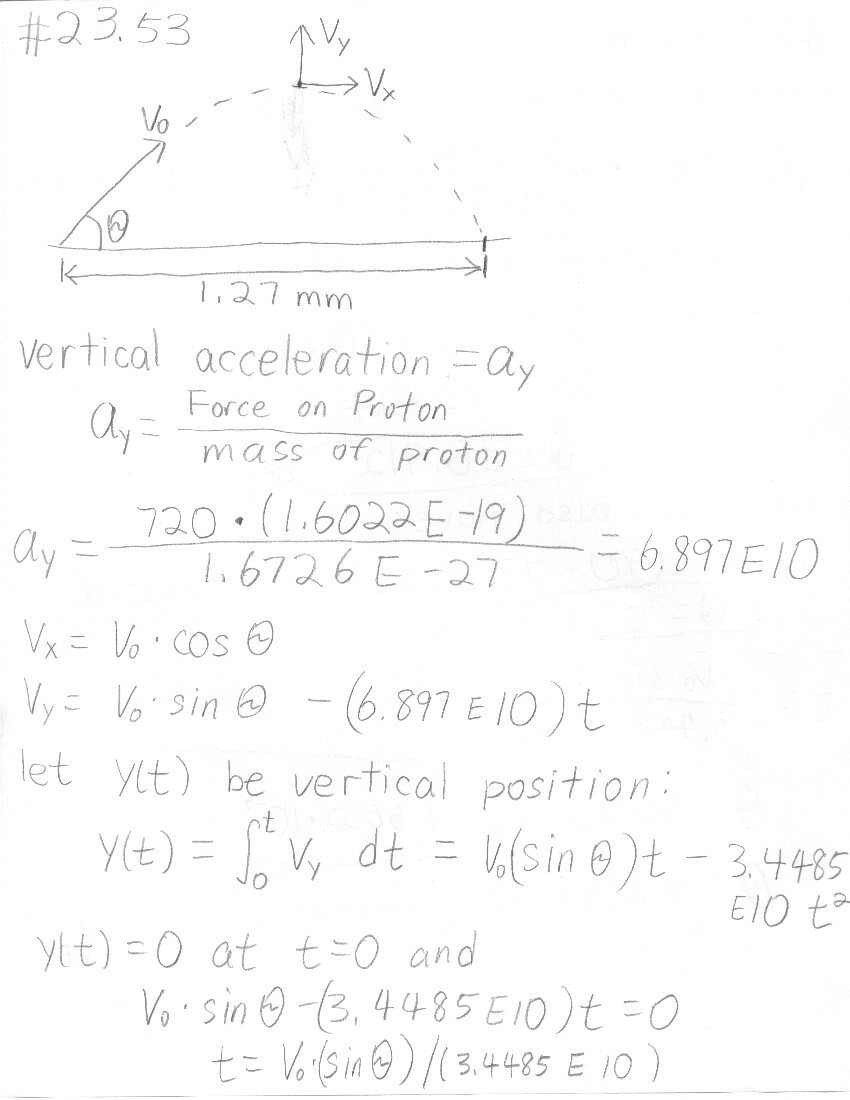 #23.53
Vy
Vx
V0
θ
1.27 mm
vertical acceleration = ay
ay = Force on Proton / mass of proton
ay = 720 · (1.6022 E-19) / 1.6726 E-27 = 6.897 E10
Vx = V0 · cos θ
Vy = V0 · sin θ - (6.897 E10) t
let y(t) be vertical position:
y(t) = ∫₀ᵗ Vy dt = V0(sin θ)t - 3.4485
E10 t²
y(t) = 0 at t = 0 and
V0 · sin θ - (3.4485 E10) t = 0
t = V0·(sin θ)/(3.4485 E 10)